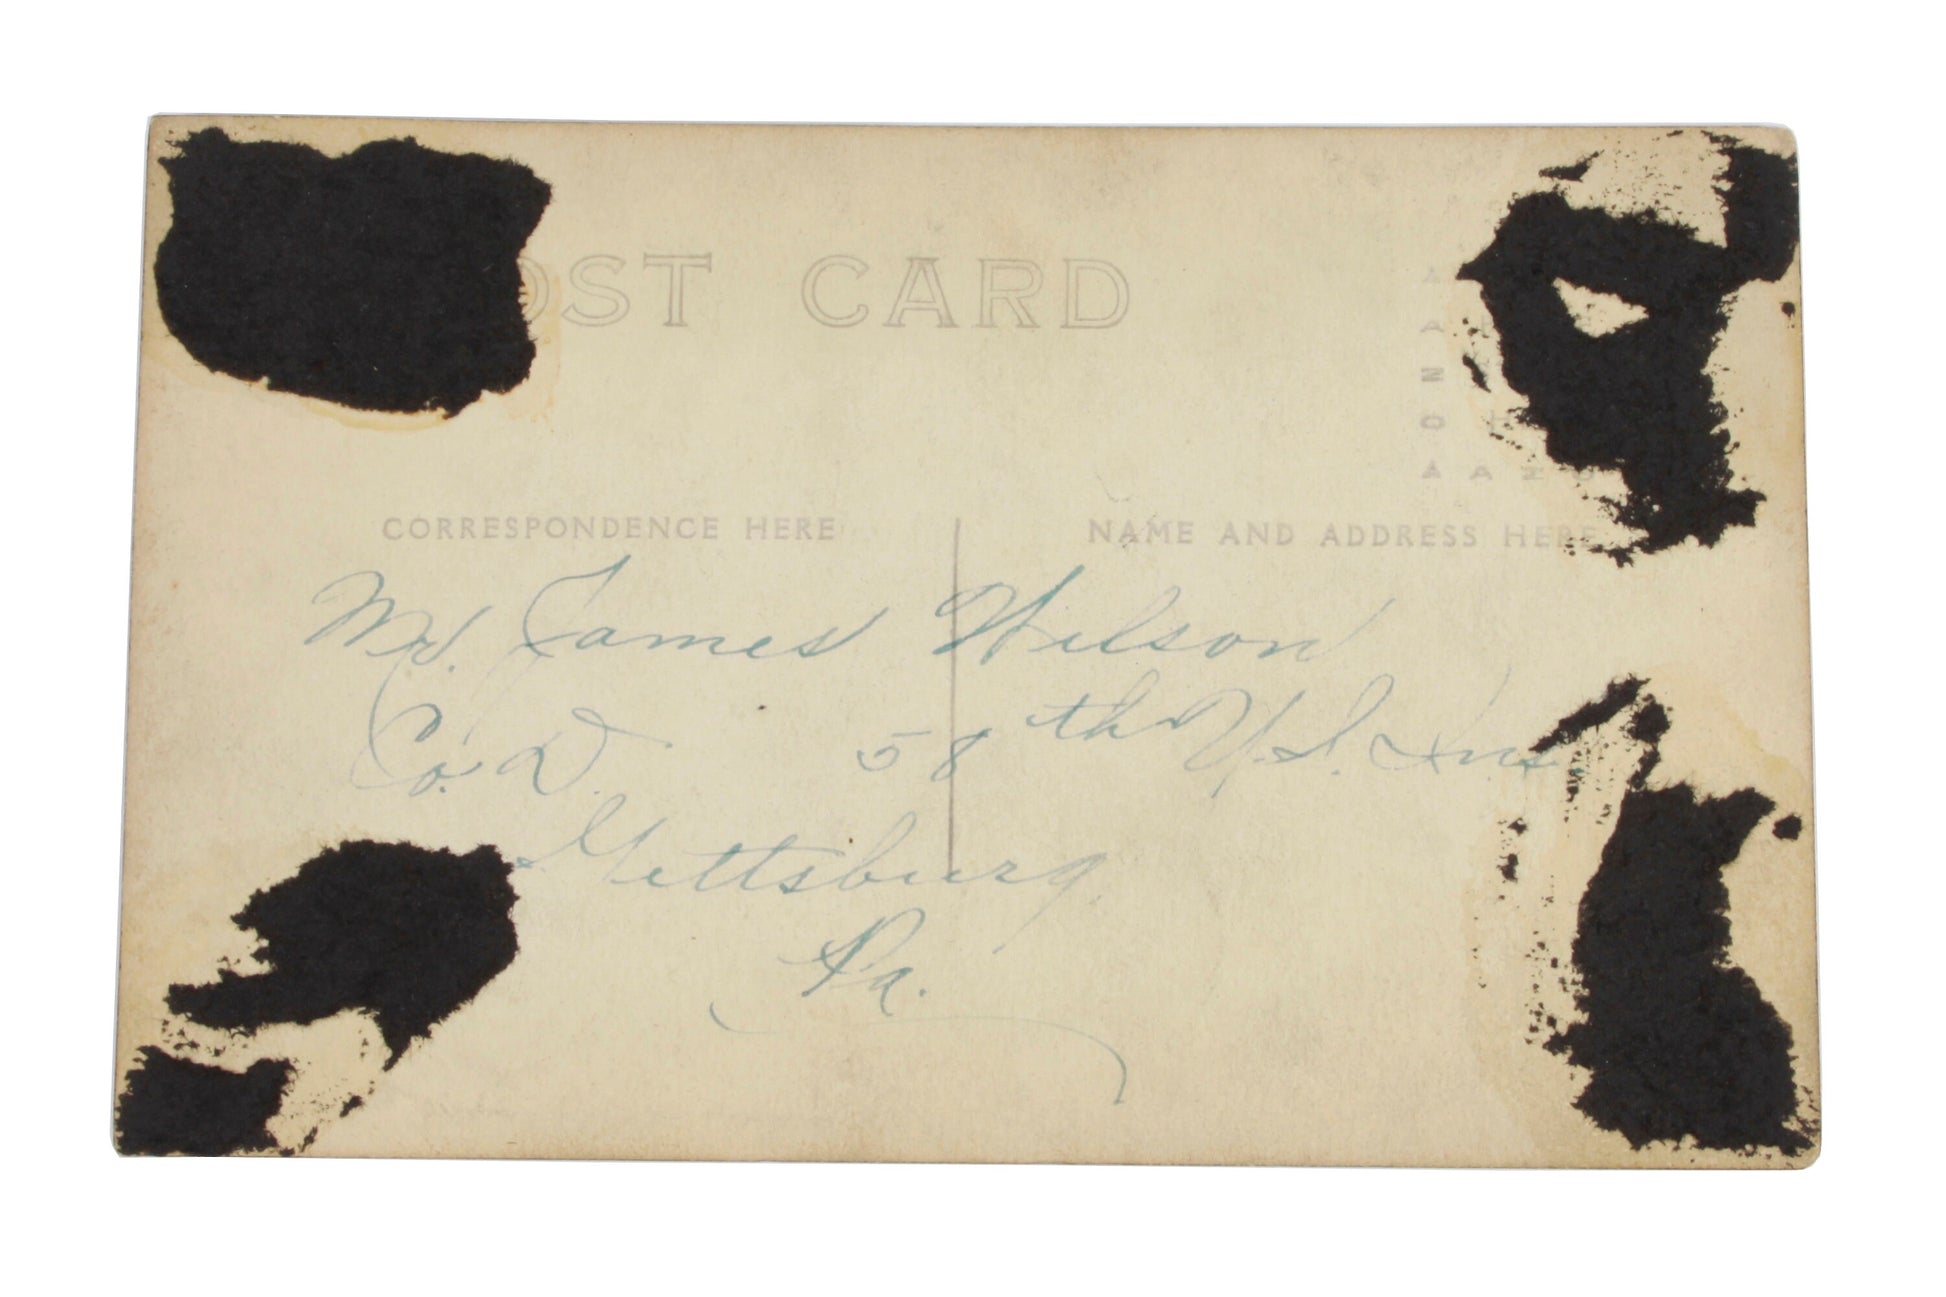 OST CARD
A
A
N
O
A Z O
CORRESPONDENCE HERE
NAME AND ADDRESS HERE
Mr. James Wilson
Co. D. 58th U.S. Inf.
Gettsburg.
Pa.